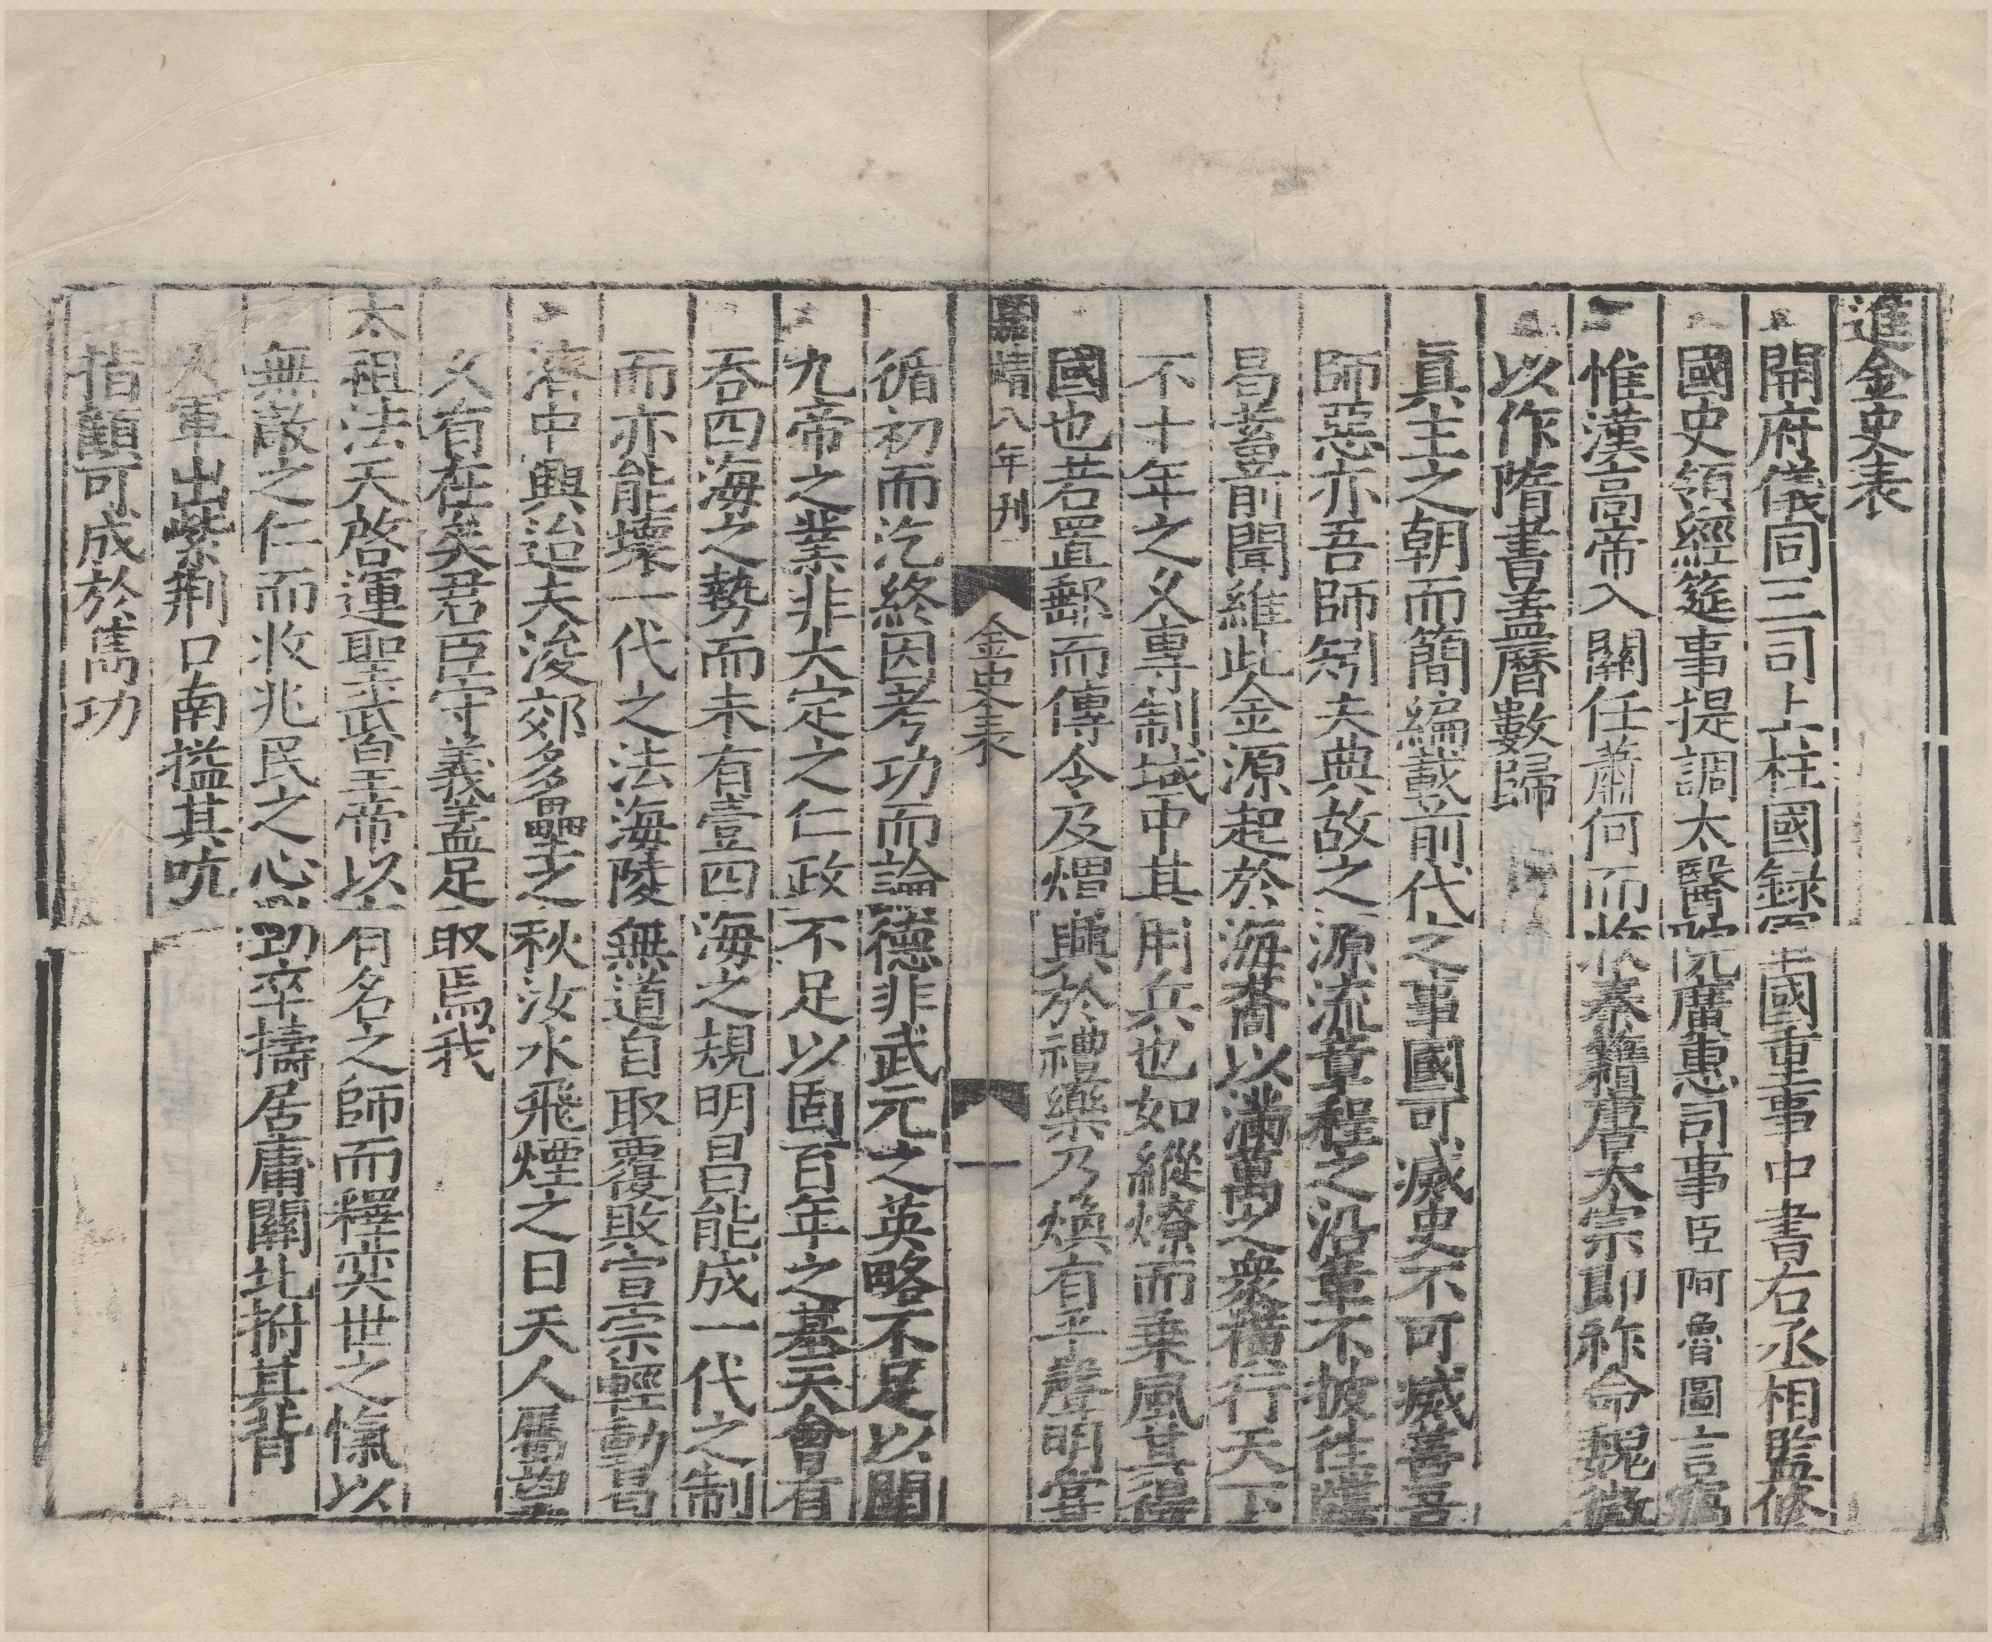 進金史表
開府儀同三司上柱國録軍國重事中書右丞相監修
國史領經筵事提調太醫院廣惠司事臣阿魯圖言竊
惟漢高帝入關任蕭何而收秦籍唐太宗即祚命魏徵
以作隋書蓋曆數歸
真主之朝而簡編載前代之事國可滅史不可滅善吾
師惡亦吾師矧夫典故之源流章程之沿革不披徃諜
曷蓄前聞維此金源起於海裔以滿萬之衆橫行天下
不十年之久專制域中其用兵也如縱燎而乗風其得
國也若置郵而傳令及熠興於禮樂乃煥有乎聲明嘗
嘉靖八年刊
金史表
一
循初而汔終因考功而論德非武元之英略不足以開
九帝之業非大定之仁政不足以固百年之基天會有
吞四海之勢而未有壹四海之規明昌能成一代之制
而亦能壞一代之法海陵無道自取覆敗宣宗輕動曷
濟中興迨夫浚郊多壘之秋汝水飛煙之日天人屬望
久有在矣君臣守義蓋足取焉我
太祖法天啓運聖武皇帝以有名之師而釋奕世之愾以
無敵之仁而收兆民之心勁卒擣居庸關北拊其背
大軍出紫荆口南搤其吭
指顧可成於雋功